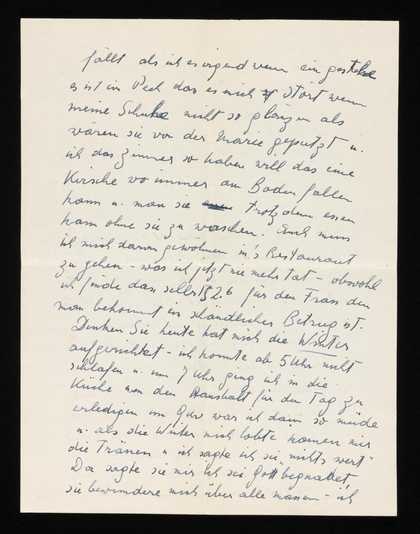 fällt als ich es irgend wem eingestehe
es ist ein Pech das es mich stört wenn
meine Schuhe nicht so glänzen als
wären sie von der Marie geputzt u.
ich das Zimmer so haben will das eine
Kirsche wo immer am Boden fallen
kann u. man sie trotzdem essen
kann ohne sie zu waschen. Auch muss
ich mich daran gewöhnen in's Restaurant
zu gehen – was ich jetzt nie mehr tat – obwohl
ich finde das selbst für den Frass den
man bekommt ein schändlicher Betrug ist.
Denken Sie heute hat mich die Winter
aufgerichtet – ich konnte ab 5 Uhr nicht
schlafen u. um 7 Uhr ging ich in die
Küche um den Haushalt für den Tag zu
erledigen um war ich dann so müde
u. als die Winter mich lobte kamen mir
die Tränen u. ich sagte ich sei nichts wert
Da sagte sie mir ich sei Gott begnadet,
sie bewundere mich über alle massen – ich